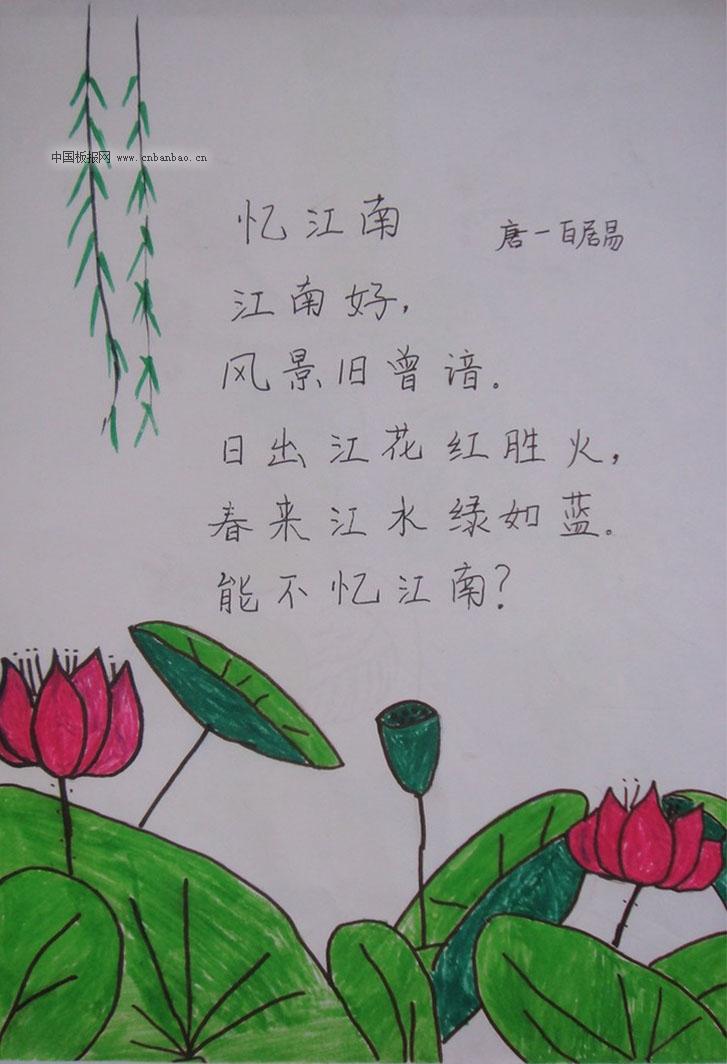 中国板报网 www.cnbanbao.cn
忆江南 唐—百居易
江南好，
风景旧曾谙。
日出江花红胜火，
春来江水绿如蓝。
能不忆江南？